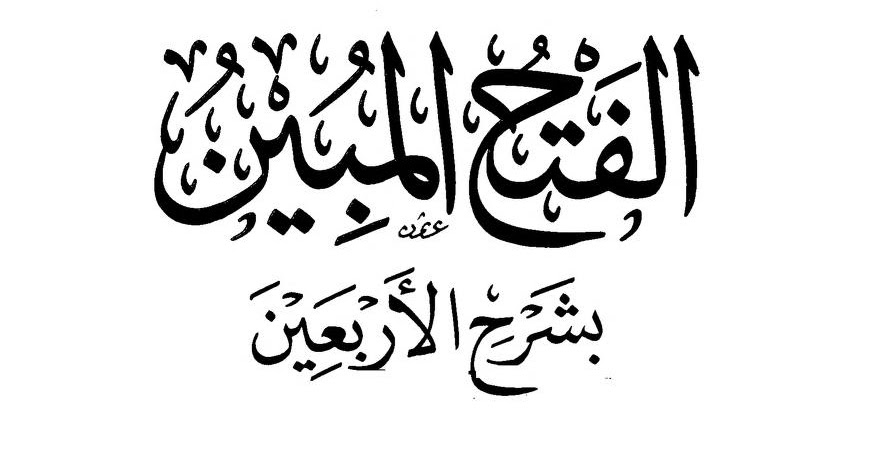 الفَتْحُ المُبِيْنُ
بشَرْحِ الأَرْبَعِيْنَ